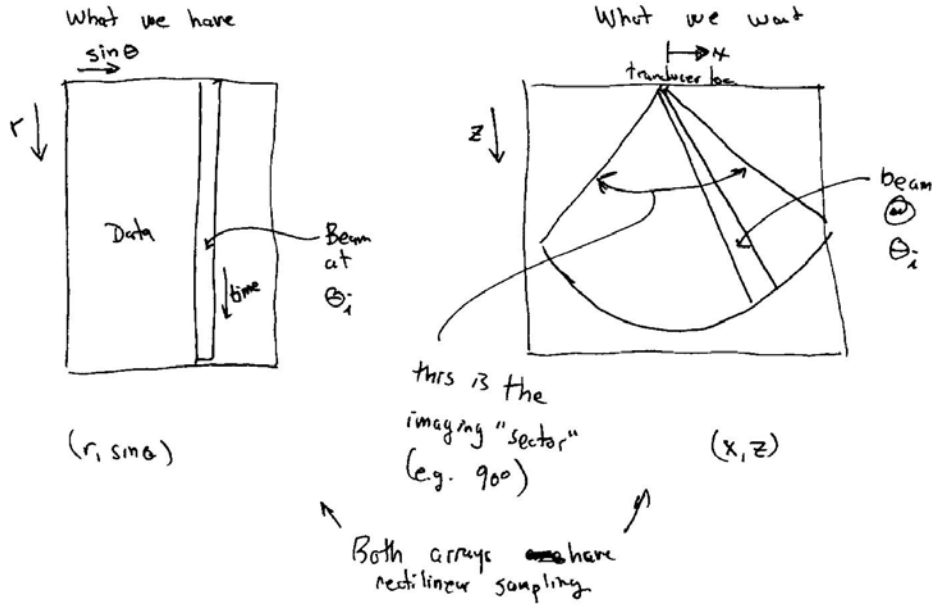 What we have
sinθ
r
Data
Beam
at
θi
time
(r, sinθ)
What we want
x
tranducer loc
z
beam
@
θi
this is the
imaging "sector"
(e.g. 90°)
(x, z)
Both arrays have
rectilinear sampling